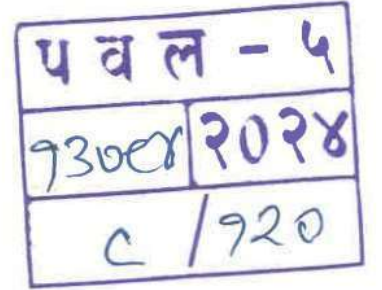 पवल - ५
१३०९४ २०२४
८ /१२०